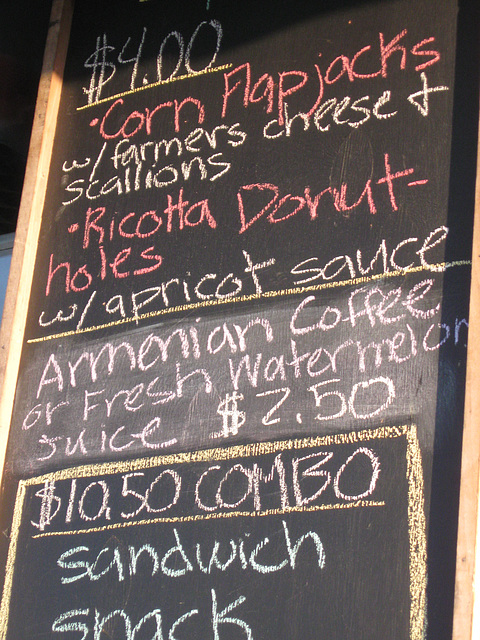 $4.00
•Corn Flapjacks
w/farmers cheese &
scallions
•Ricotta Donut-
holes
w/apricot sauce
Armenian Coffee
or Fresh Watermelon
Juice $2.50
$10.50 COMBO
sandwich
snack